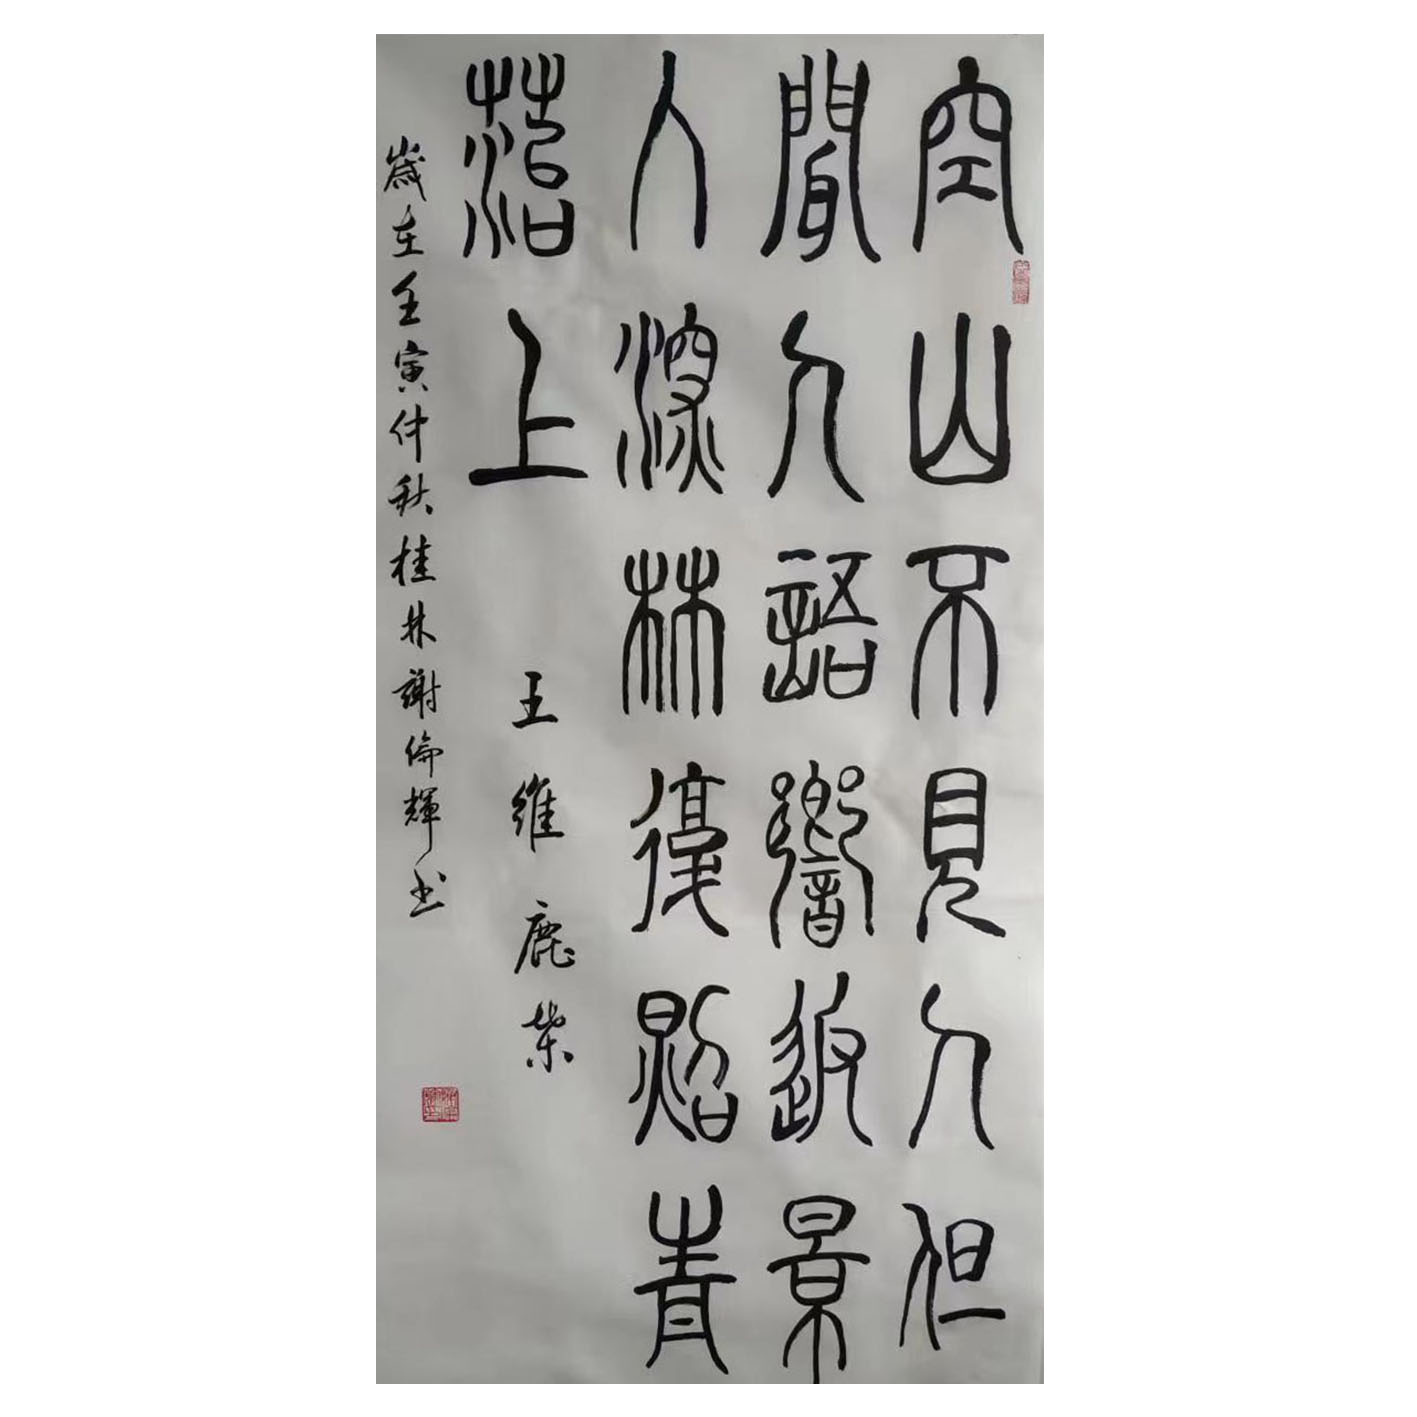 空山不見人但
聞人語響返景
入深林復照青
落上
王維鹿柴
歲在壬寅仲秋桂林謝倫輝书